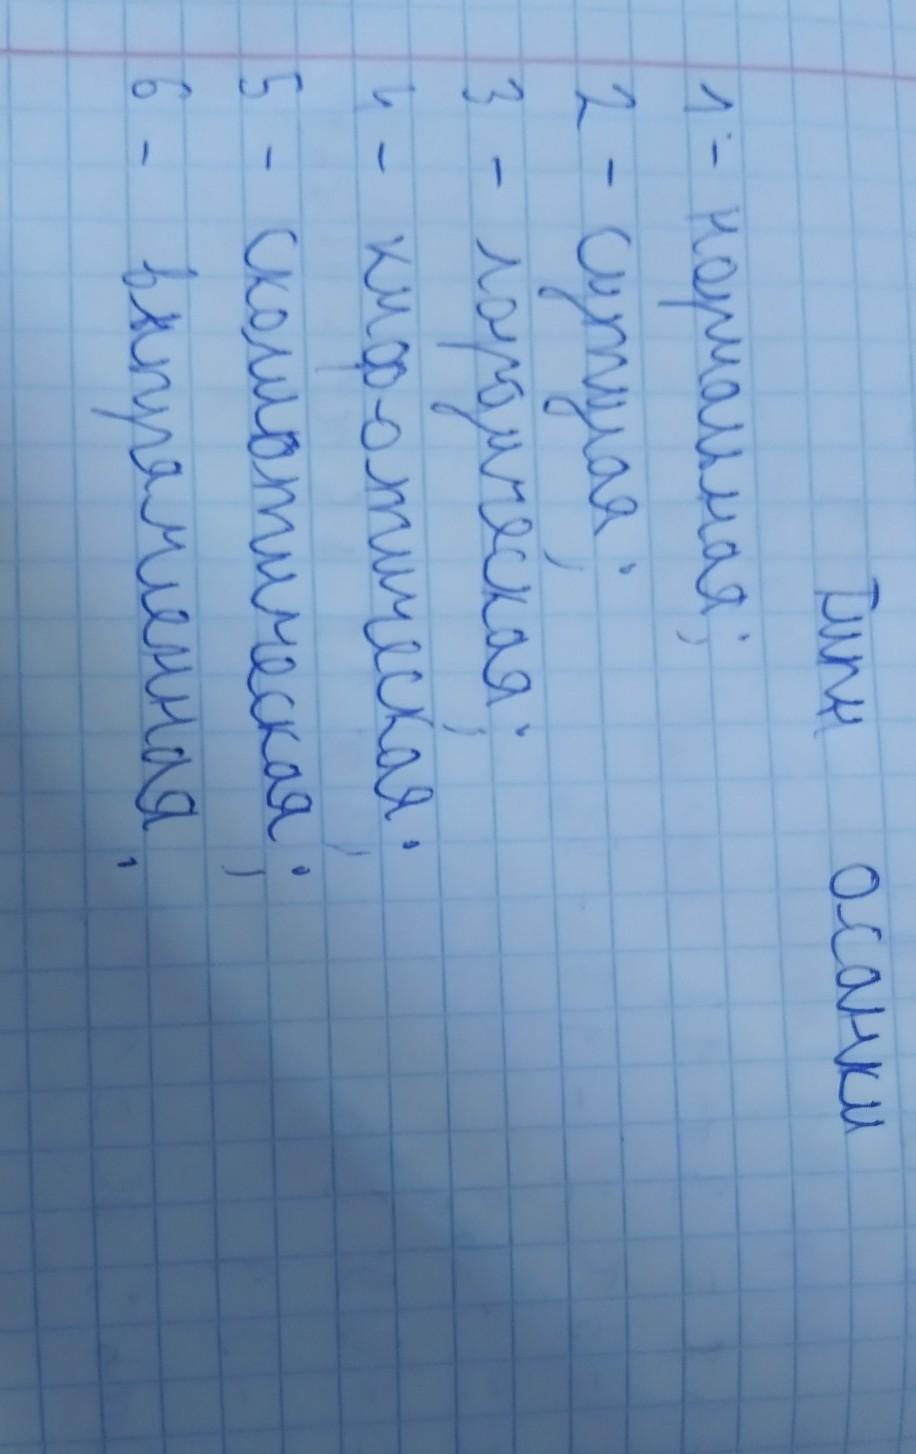 Типы осанки
1 - нормальная;
2 - сутулая;
3 - лордическая;
4 - кифотическая;
5 - сколиотическая;
6 - выпрямленная.